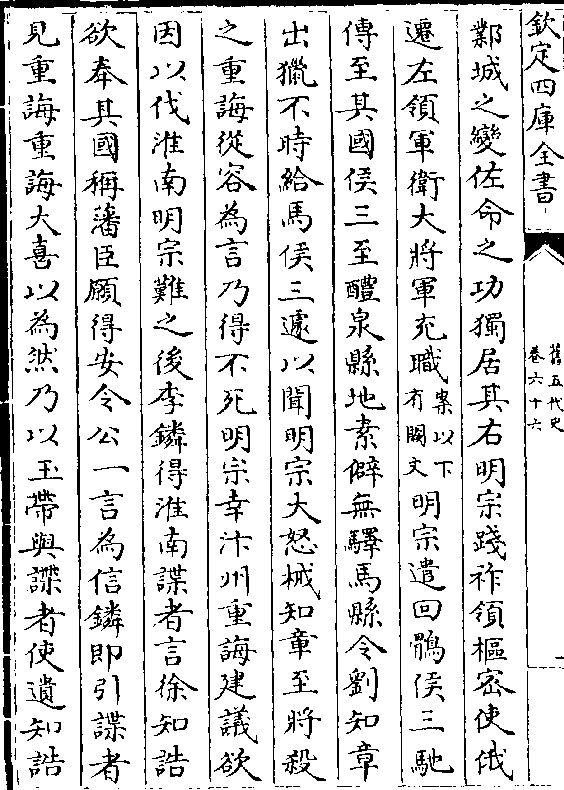 欽定四庫全書
舊五代史
卷六十六
鄴城之變佐命之功獨居其右明宗踐祚領樞密使俄
遷左領軍衛大將軍充職案以下有闕文明宗遣回鶻侯三馳
傳至其國侯三至醴泉縣地素僻無驛馬縣令劉知章
出獵不時給馬侯三遽以聞明宗大怒械知章至將殺
之重誨從容為言乃得不死明宗幸汴州重誨建議欲
因以伐淮南明宗難之後李鏻得淮南諜者言徐知誥
欲奉其國稱藩臣願得安令公一言為信鏻即引諜者
見重誨重誨大喜以為然乃以玉帶與諜者使遺知誥